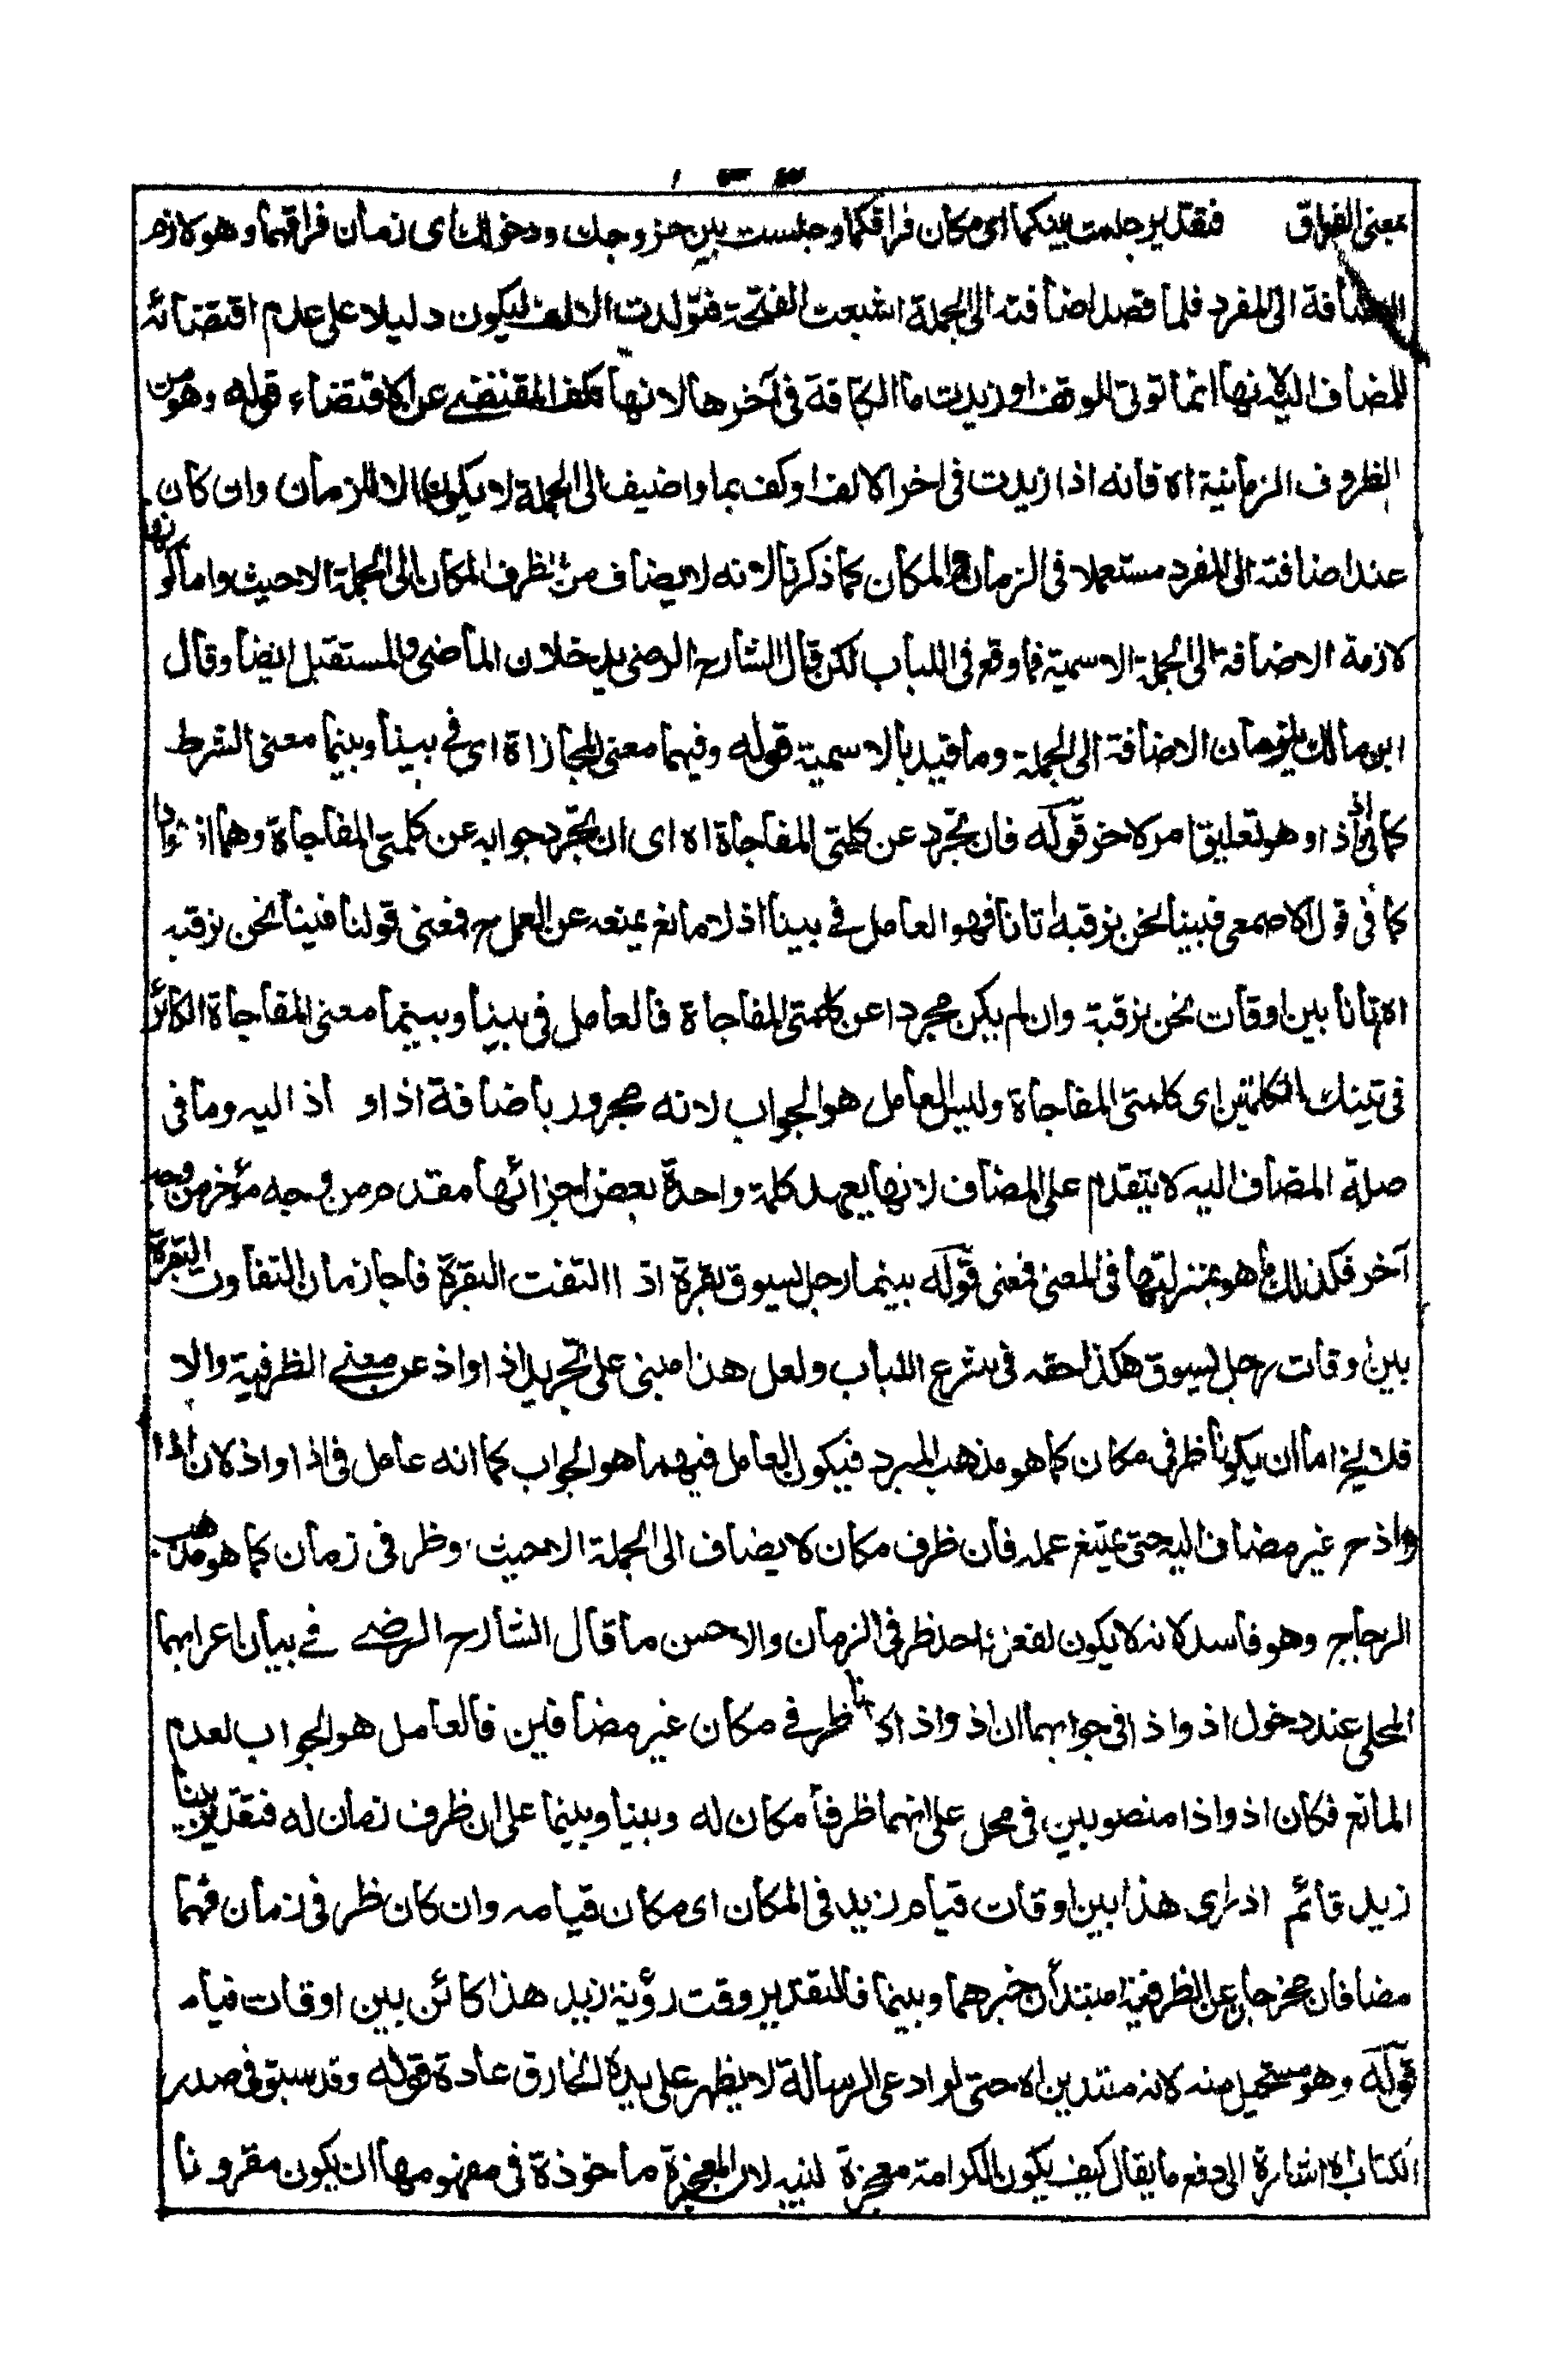 بمعنى الفراق فتقدير جلست بينكما اى مكان فراقكما وجلست بين خروجك ودخولك اى زمان فراقهما وهو لازم
الاضافة الى المفرد فلما قصد اضافته الى الجملة اشبعت الفتحة فتولدت الالف ليكون دليلا على عدم اقتضائه
للمضاف اليه لانها انما توتى للوقف او زيدت ما الكافة فى آخرها لانها تكف المقتضى عن الاقتضاء قوله وهو من
الظروف الزمانية اه فانه اذا زيدت فى اخر الالف او كف بما واضيف الى الجملة لا يكون الا للزمان وان كان
عند اضافته الى المفرد مستعملا فى الزمان والمكان كما ذكرنا لانه لا يضاف من ظرف المكان الى الجملة الا حيث واما كونها
لازمة الاضافة الى الجملة الاسمية فما وقع فى اللباب لكن قال الشارح الرضى يدخلان الماضى والمستقبل ايضا وقال
ابن مالك يلزمان الاضافة الى الجملة وما قيد بالاسمية قوله وفيهما معنى المجازاة اى فى بينا وبينما معنى الشرط
كما فى اذ واذا وهو تعليق امر لاخر قوله فان تجرد عن كلمتى المفاجاة اه اى ان تجرد جوابه عن كلمتى المفاجاة وهما اذ واذا
كما فى قول الاصمعى فبينا نحن نرقبه اتانا فهو العامل فى بينا اذ لا مانع يمنعه عن العمل ح فمعنى قولنا فبينا نحن نرقبه
اه اتانا بين اوقات نحن نرقبه وان لم يكن مجردا عن كلمتى المفاجاة فالعامل فى بينا وبينما معنى المفاجاة الكائن
فى تينك الكلمتين اى كلمتى المفاجاة وليس العامل هو الجواب لانه مجرور باضافة اذا و اذ اليه وما فى
صلة المضاف اليه لا يتقدم على المضاف لانها يعهد كلمة واحدة بعض اجزائها مقدم من وجه مؤخر من وجه
آخر فكذلك ما هو بمنزلتها فى المعنى فمعنى قوله بينما رجل يسوق بقرة اذ التفت البقرة فاجا زمان التفاوت البقرة
بين اوقات رجل يسوق هكذا حقه فى شرح اللباب ولعل هذا مبنى على تجريد اذا واذ عن معنى الظرفية والا
فلا يخ اما ان يكونا ظرفى مكان كما هو مذهب المبرد فيكون العامل فيهما هو الجواب كما انه عامل فى اذا واذ لان اذا
واذ ح غير مضاف اليه حتى يمتنع عمله فان ظرف مكان لا يضاف الى الجملة الا حيث وظرفى زمان كما هو مذهب
الزجاج وهو فاسد لانه لا يكون لفعل واحد ظرفى الزمان والاحسن ما قال الشارح الرضى فى بيان اعرابهما
المحلى عند دخول اذ واذا فى جوابهما ان اذ واذا كانا ظرفى مكان غير مضافين فالعامل هو الجواب لعدم
المانع فكان اذ واذا منصوبين فى محل على انهما ظرفا مكان له وبينا وبينما على ان ظرف زمان له فتقدير بينا
زيد قائم اذ راى هذا بين اوقات قيام زيد فى المكان اى مكان قيامه وان كان ظرفى زمان فهما
مضافان مخرجان عن الظرفية مبتدآن خبرهما وبينما فالتقدير وقت رؤية زيد هذا كائن بين اوقات قيام
قوله وهو مستحيل منه لانه متدين اه حتى لو ادعى الرسالة لا يظهر على يده الخارق عادة قوله وقد سبق فى صدر
الكتاب اه اشارة الى دفع ما يقال كيف يكون الكرامة معجزة لنبيه لان المعجزة ماخوذة فى مفهومها ان يكون مقرونا